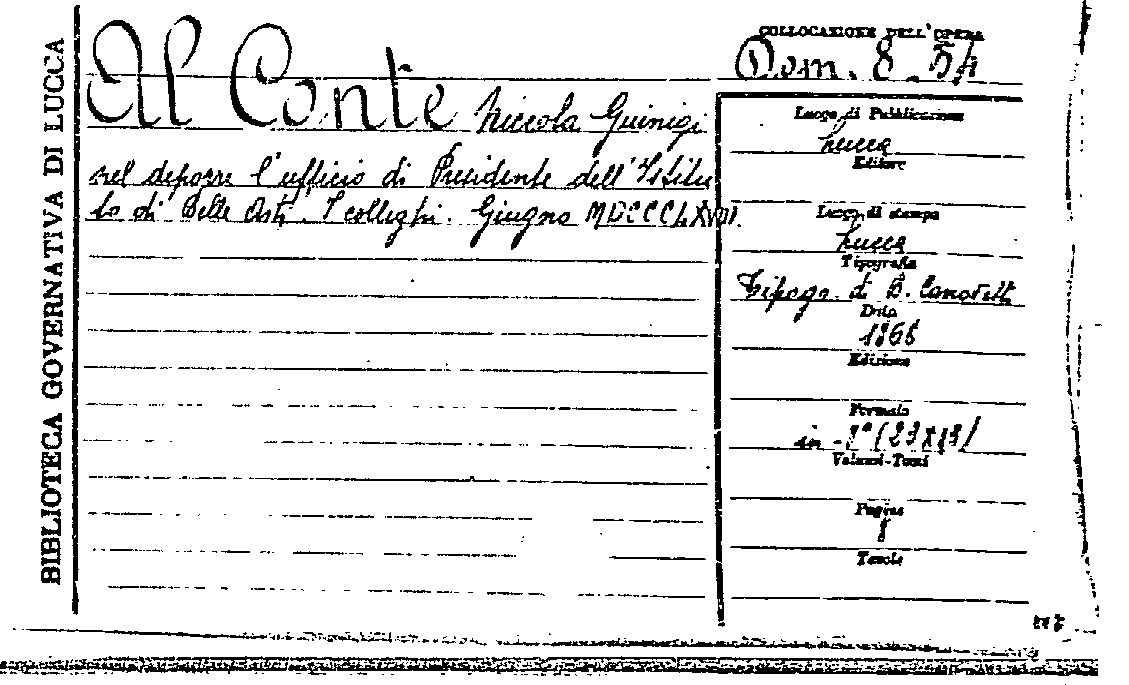 BIBLIOTECA GOVERNATIVA DI LUCCA
COLLOCAZIONE DELL'OPERA
Dom. 8. 54
Il Conte Niccola Guinigi
nel deporre l'ufficio di Presidente dell'Istitu
to di Belle Arti. I colleghi. Giugno MDCCCLXVIII.
Luogo di Pubblicazione
Lucca
Editore
Luogo di stampa
Lucca
Tipografia
Tipogr. di B. Canovetti
Data
1868
Edizione
Formato
in-8° (23x13)
Volumi-Tomi
Pagine
8
Tavole